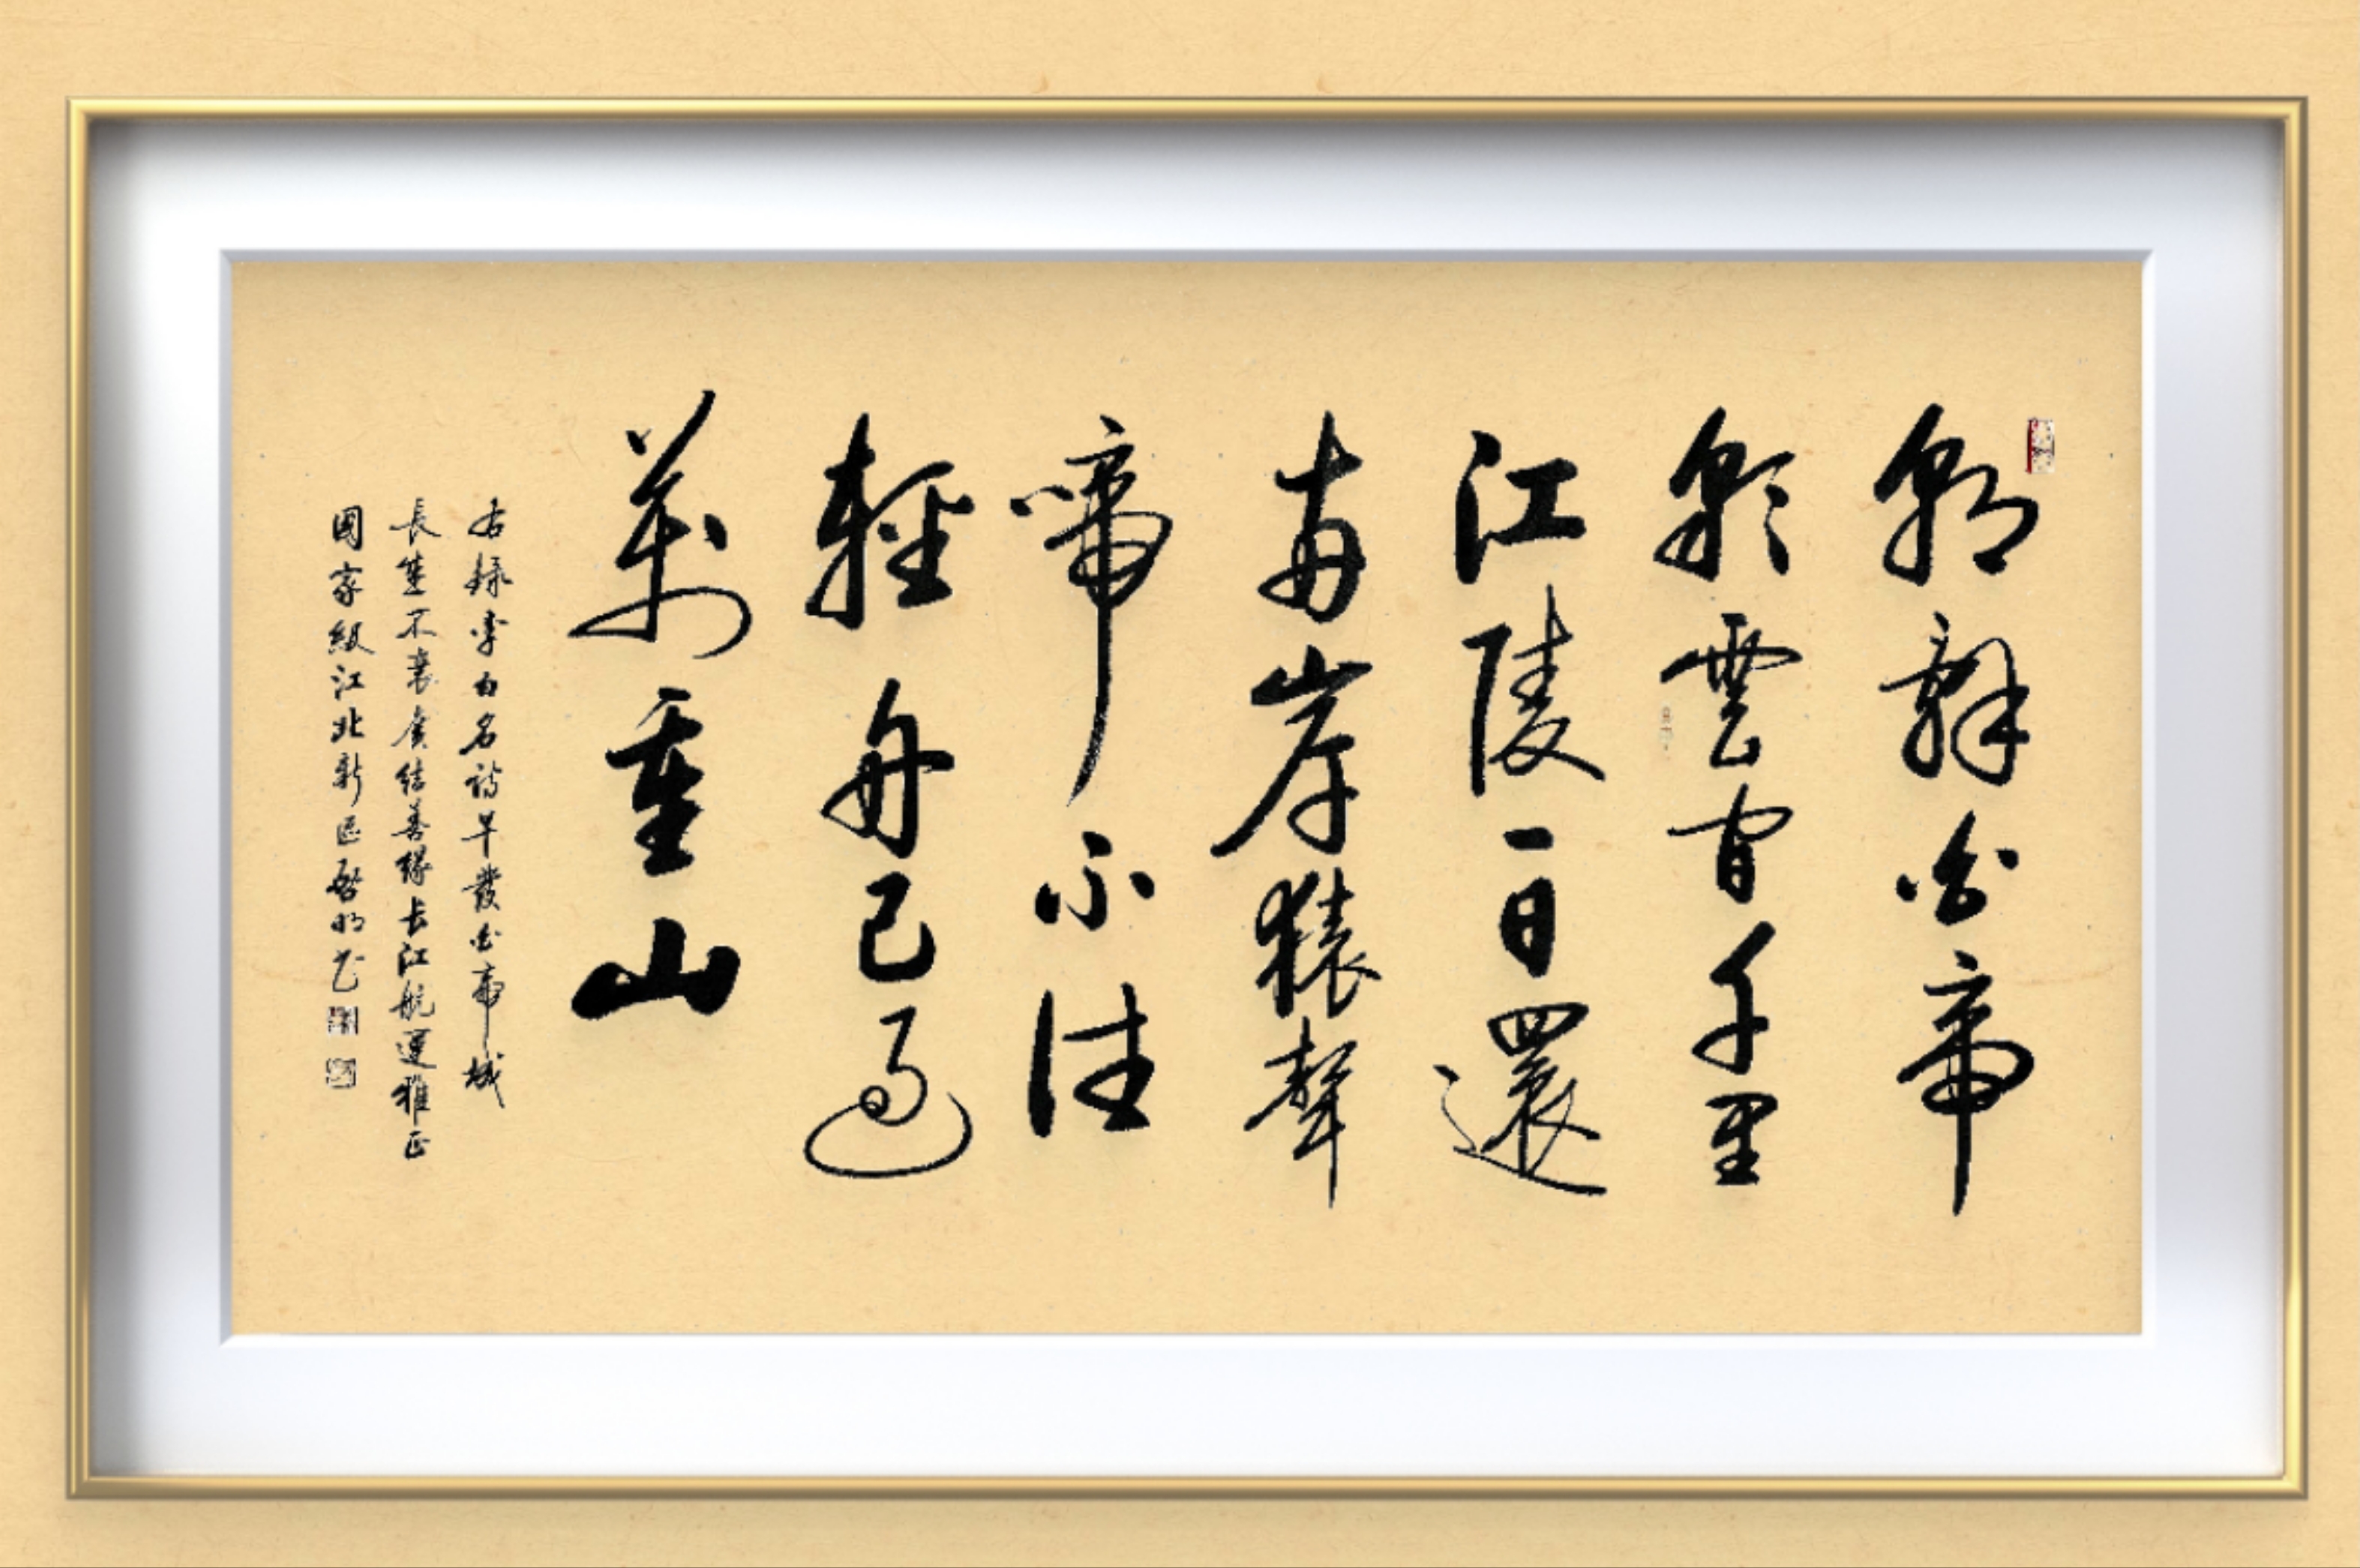 朝辞白帝
彩雲間千里
江陵一日還
兩岸猿聲
啼不住
輕舟已過
萬重山
右録李白名詩早發白帝城
長笙不衰廣結善緣长江航運雅正
國家級江北新区啓明书